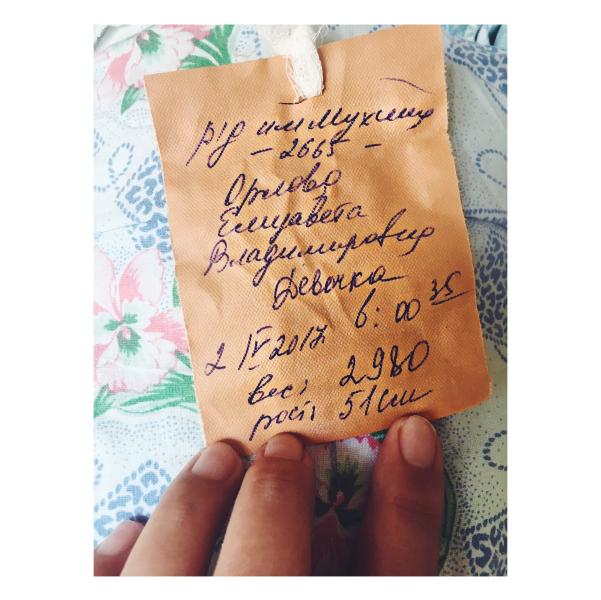 р/д им Мухиных
- 2665 -
Орлова
Елизавета
Владимировна
Девочка
2 IV 2017 в: 00 35
вес: 2980
рост: 51 см